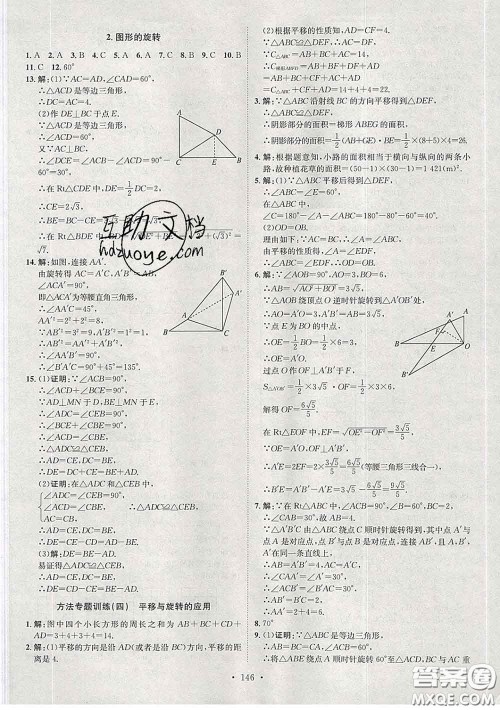 2. 图形的旋转
1. A 2. A 3. A 4. A 5. B 6. C 7. B 8. C 9. C 10. B
11. C 12. 60°
13. 解：(1)∵AC=AD，∠CAD=60°，
∴△ACD是等边三角形，
∴DC=AC=4.
(2)作DE⊥BC于点E.
∵△ACD是等边三角形，
∴∠ACD=60°，
又∵AC⊥BC，
∴∠DCE=∠ACB-∠ACD=90°-60°=30°，
∴在Rt△CDE中，DE=1/2 DC=2，
∴CE=2√3，
∴BE=BC-CE=3√3-2√3=√3，
∴在Rt△BDE中，BD=
√7.
14. 解：如图，连接AA′.
由旋转得AC=A′C，A′B′=AB，
即△ACA′为等腰直角三角形，
∴∠AA′C=45°，
AA′²=2²+2²=8.
∵AB′²=3²=9，
A′B′²=1²=1，
∴AB′²=AA′²+A′B′²，
∴∠AA′B′=90°，
∴∠A′=90°+45°=135°.
15. (1)证明：∵∠ACB=90°，
∴∠ACD+∠BCE=90°.
∵AD⊥MN于D，BE⊥MN于E，
∴∠ADC=∠CEB=90°，
∠BCE+∠CBE=90°，
∴∠ACD=∠CBE.
又∵AC=BC，
∴△ADC≌△CEB，
∴AD=CE，DC=BE，
∴DE=DC+CE=BE+AD.
(2)证明：在△ADC和△CEB中，
∠ADC=∠CEB=90°，
∠ACD=∠CBE，
AC=CB，
∴△ADC≌△CEB，
∴AD=CE，DC=BE，
∴DE=CE-CD=AD-BE.
(3)解：DE=BE-AD.
易证得△ADC≌△CEB，
∴AD=CE，DC=BE，
∴DE=CD-CE=BE-AD.
方法专题训练(四) 平移与旋转的应用
1. 解：图中四个小长方形的周长之和为HD+CD+
AD=3+4+3+4=14.
2. 解：(1)平移的方向是沿BC(或者是沿AD)，平移的距
离是4.
(2)根据平移的性质知，AD=CF=4.
∵△ABC≌△DEF，
∴AC=DF.
∵C△ABC=AB+BC+AC=14，
=AB+BF+DF+AD
=AB+BC+CF+AC+AD
=C△ABC+AD+CF=14+4+4=22.
3. 解：∵△ABC沿射线BC的方向平移得到△DEF，
∴△ABC≌△DEF，
∴阴影部分的面积=梯形ABEG的面积，
∴阴影部分的面积=1/2(AB+GE)·BE=1/2×(8+5)×4=26.
4. 解：根据题意知，小路的面积相当于横向与纵向的两条小
路，故种植花草的面积=(50-1)×(30-1)=1 421(m²).
5. 解：(1)∵△ABC平移后得到了△DEF，
∴∠ABC=∠DEF=70°.
在△ABC中，
∠C=180°-∠A-∠ABC=180°-50°-70°=60°.
(2)OB=OD.
理由如下：∵△ABC≌△DEF，
∴∠ABC=∠DEF，
∴OB=OE.
6. 解：∵∠AOB=90°，AO=3，BO=6，
∴AB=√(AO²+BO²)=3√5.
∵△AOB绕顶点O逆时针旋转到△A′OB′处，
∴AO=A′O=3，A′B′=AB=3√5.
∵点E为BO的中点，
∴OE=1/2 BO=1/2×6=3，
∴OE=A′O.
过点O作OF⊥A′B′于F，
S△A′OB′=1/2×3√5·OF=1/2×3×6，
解得OF=6√5/5.
在Rt△EOF中，EF=√(OE²-OF²)=3√5/5.
∵OE=A′O，OF⊥A′B′，
∴A′E=2EF=2×3√5/5=6√5/5(等腰三角形三线合一)，
∴B′E=A′B′-A′E=3√5-6√5/5=9√5/5.
7. 解：∵在Rt△ABC中，∠ACB=90°，∠B=60°，BC=2，
∴∠CAB=30°，故AB=4.
∵△A′B′C由△ABC绕点C顺时针旋转得到，其中点A′与
点A是对应点，点B′与点B是对应点，且点A、B′、A′在
同一条直线上，
∴AB=A′B′=4，AC=A′C，
∴∠CAA′=∠A′=30°，
∴∠ACB′=∠B′AC=30°，
∴AB′=B′C=2，
∴AA′=2+4=6.
8. 70°
9. (1)证明：∵△ABC是等边三角形，
∴AB=AC，∠BAC=60°，
∴将△ABE绕点A逆时针旋转60°后AB与AC重
146